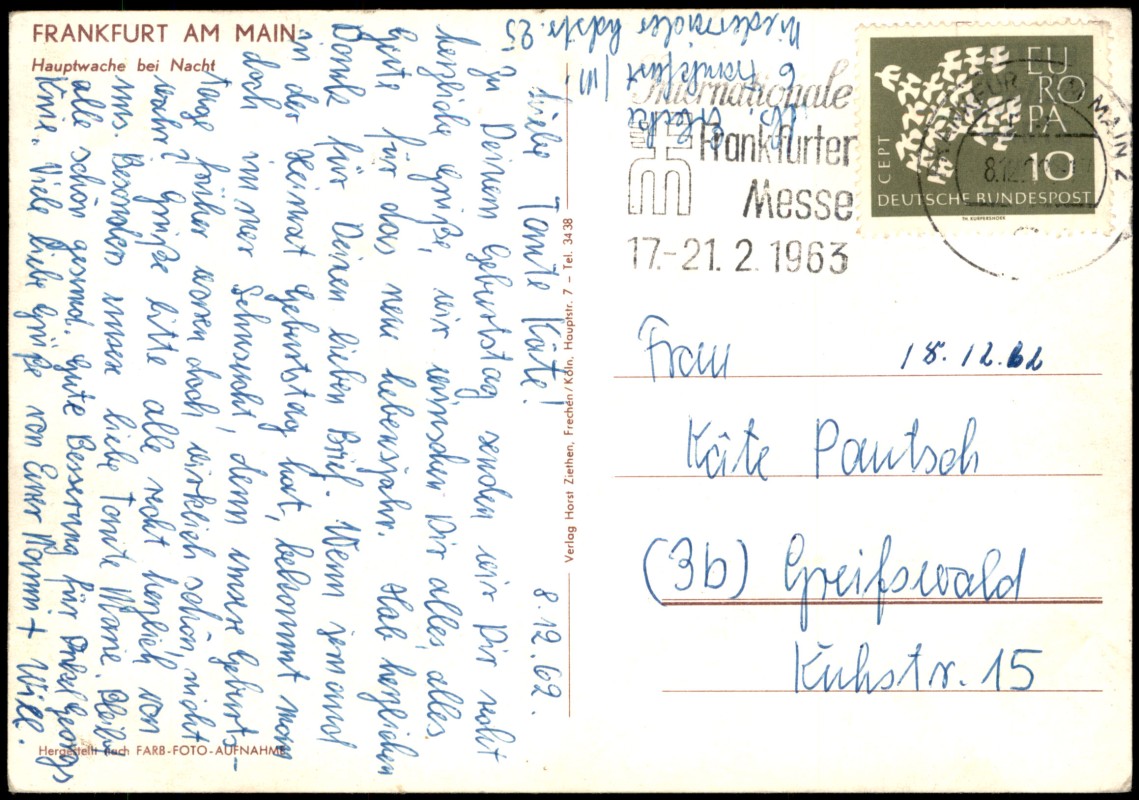 FRANKFURT AM MAIN
Hauptwache bei Nacht
8.12.62.
Liebe Tante Käte!
Zu Deinem Geburtstag senden wir Dir recht
herzliche Grüße, wir wünschen Dir alles, alles
Gute für das neue Lebensjahr. Hab herzlichen
Dank für Deinen lieben Brief. Wenn jemand
in der Heimat Geburtstag hat, bekommt man
doch immer Sehnsucht, denn unsere Geburts-
tage früher waren doch wirklich schön, nicht
wahr? Grüße bitte alle recht herzlich von
uns. Besonders unsere liebe Tante Marie. Bleibt
alle schön gesund. Gute Besserung für Onkel Georgs
Knie. Viele liebe Grüße von Eurer Manni + Willi.
Hergestellt nach FARB-FOTO-AUFNAHME
Verlag Horst Ziethen, Frechen/Köln, Hauptstr. 7 – Tel. 3438
6 Frankfurt/M.
Internationale
Frankfurter
Messe
17.-21. 2. 1963
EUROPA
CEPT
10
DEUTSCHE BUNDESPOST
FRANKFURT MAIN 2
Frau
18.12.62
Käte Pautsch
(3b) Greifswald
Kuhstr. 15